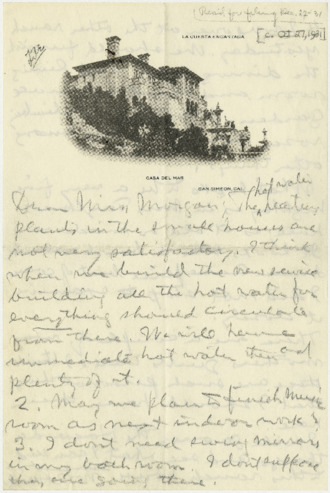 Rec'd for filing Dec. 22-31
LA CUESTA ENCANTADA
[c. Oct 27, 1931]
CASA DEL MAR
SAN SIMEON, CAL.
hot water
Dear Miss Morgan, The heating
plants in the small houses are
not very satisfactory. I think
when we build the new service
building all the hot water for
everything should circulate
from there. We will have
immediate hot water then and
plenty of it.
2. May we plan to finish Music
room as next indoor work?
3. I don't need swing mirrors
in my bathroom. I don't suppose
they are going there.